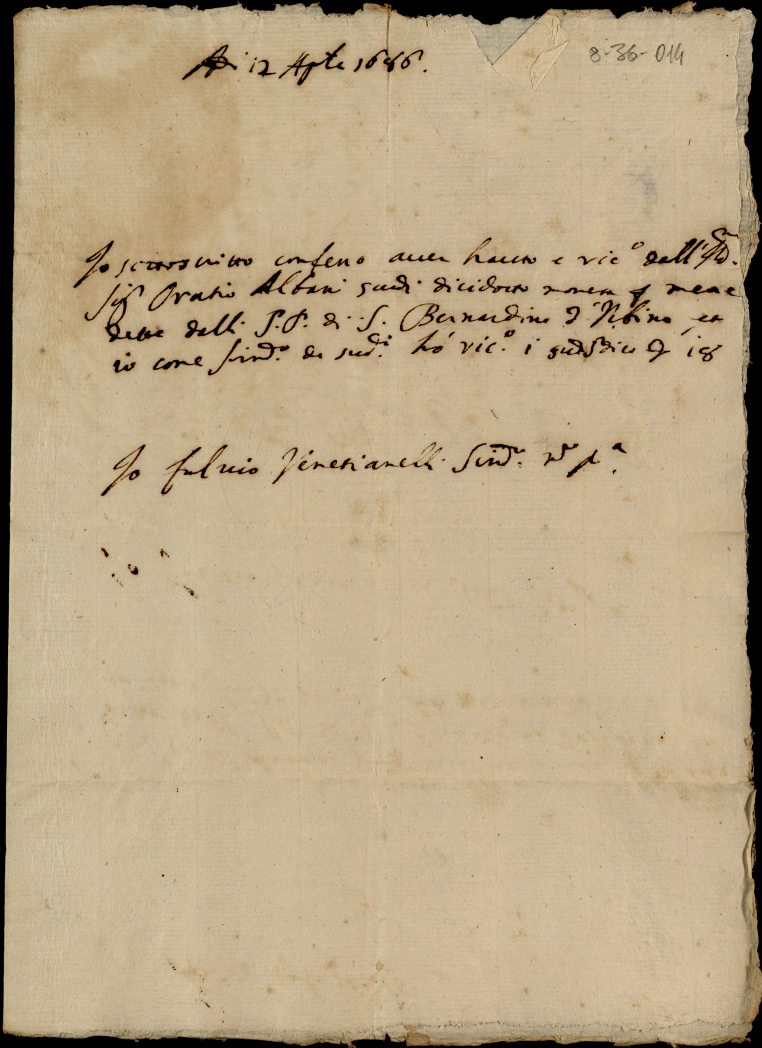 8-36-014
Adi 12 Aple 1686.
Io sottoscritto confesso auer hauto e ric.º dall'Ill.
Sig.r Oratio Albani scudi dicidotto moneta p mene
dette dalli P.P. di S. Bernardino d'Urbino et
io come Sind.º de sud.i hó ric.º i scudi dico 18
Io fuluio Venetianelli Sind.º